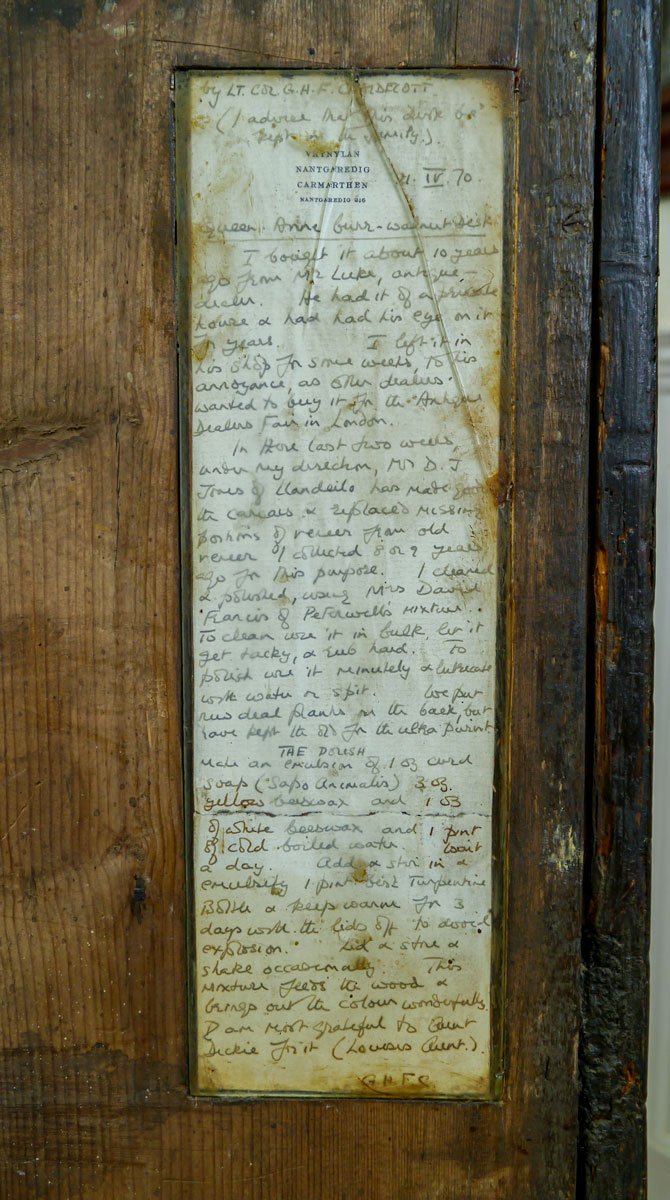 by LT. COL G.H.F. CHALDECOTT
(I advise that this desk be
kept in the family.).
NANTGAREDIG
CARMARTHEN
NANTGAREDIG 216
IV. 70.
Queen Anne burr-walnut desk
I bought it about 10 years
ago from Mr Luke, antique-
dealer. He had it of a private
house & had had his eye on it
for years. I left it in
his shop for some weeks, to his
annoyance, as other dealers
wanted to buy it for the Antique
Dealers Fair in London.
In these last two weeks,
under my direction, Mr D. J.
Jones of Llandeilo has made good
the carcass & replaced MISSING
portions of veneer from old
veneer I collected 8 or 9 years
ago for this purpose. I cleaned
& polished, using Mrs David
Francis of Peterwell's MIXTURE.
To clean use it in bulk, let it
get tacky, & rub hard. To
polish use it minutely & lubricate
with water or spit. We put
new deal planks in the back, but
have kept the old for the ultra purist
THE POLISH
Make an emulsion of 1 oz curd
soap (Sapo Animalis) 3 oz.
yellow beeswax and 1 oz
of white beeswax and 1 pint
of cold boiled water. Wait
a day. Add & stir in &
emulsify 1 pint best Turpentine
Bottle & keep warm for 3
days with the lids off to avoid
explosion. Lid & store &
shake occasionally. This
mixture feeds the wood &
brings out the colour wonderfully.
I am most grateful to Aunt
Dickie for it (Louisa's Aunt.).
G.H.F.C.